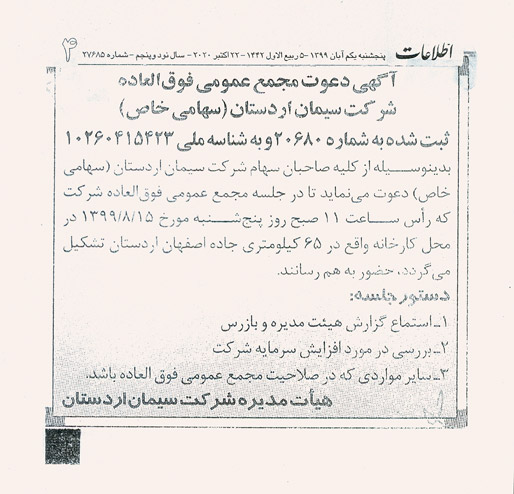 اطلاعات پنجشنبه یکم آبان ۱۳۹۹ -۵ ربیع الاول ۱۴۴۲ -۲۲ اکتبر ۲۰۲۰ - سال نود و پنجم - شماره ۲۷۶۸۵ ۴
آگهی دعوت مجمع عمومی فوق العاده
شرکت سیمان اردستان (سهامی خاص)
ثبت شده به شماره ۲۰۶۸۰ و به شناسه ملی ۱۰۲۶۰۴۱۵۴۲۳
بدینوسیله از کلیه صاحبان سهام شرکت سیمان اردستان (سهامی
خاص) دعوت می‌نماید تا در جلسه مجمع عمومی فوق‌العاده شرکت
که رأس ساعت ۱۱ صبح روز پنج‌شنبه مورخ ۱۳۹۹/۸/۱۵ در
محل کارخانه واقع در ۶۵ کیلومتری جاده اصفهان اردستان تشکیل
می‌گردد، حضور به هم رسانند.
دستور جلسه:
۱ـ استماع گزارش هیئت مدیره و بازرس
۲ـ بررسی در مورد افزایش سرمایه شرکت
۳ـ سایر مواردی که در صلاحیت مجمع عمومی فوق العاده باشد.
هیأت مدیره شرکت سیمان اردستان